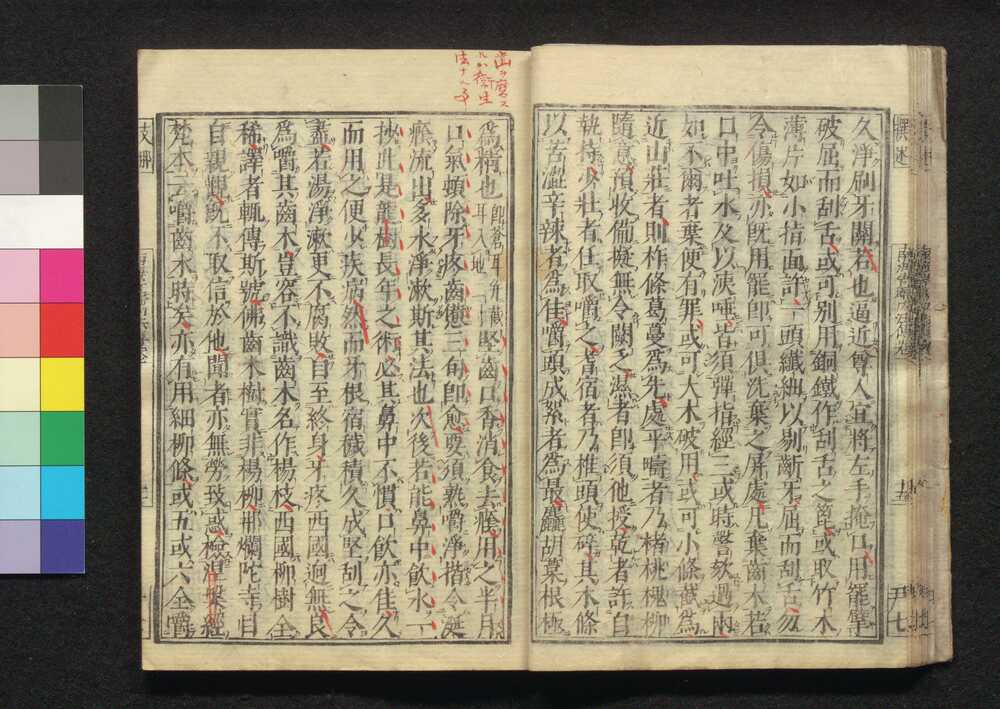 久淨刷牙關若也逼近尊人宜將左手掩口用罷擘
破屈而刮舌或可別用銅鐵作刮舌之篦或取竹木
薄片如小指面許一頭纖細以剔斷牙屈而刮舌勿
令傷損亦既用罷即可俱洗棄之屏處凡棄齒木若
口中吐水及以洟唾皆須彈指經三或時謦欬過兩
如不爾者棄便有罪或可大木破用或可小條截為
近山莊者則柞條葛蔓為先處平疇者乃楮桃槐柳
隨意預收備擬無令闕乏濕者即須他授乾者許自
執持少壯者任取嚼之耆宿者乃椎頭使碎其木條
以苦澀辛辣者為佳嚼頭成絮者為最麤胡葈根極
為精也
堅齒口香消食去癊用之半月
口氣頓除牙疼齒憊三旬即愈要須熟嚼淨揩令涎
癊流出多水淨漱斯其法也次後若能鼻中飲水一
抄此是龍樹長年之術必其鼻中不慣口飲亦佳久
而用之便少疾病然而牙根宿穢積久成堅刮之令
盡若湯淨漱更不腐敗自至終身牙疼西國迥無良
為嚼其齒木豈容不識齒木名作楊枝西國柳樹全
稀譯者輒傳斯號佛齒木樹實非楊柳那爛陀寺目
自親覩既不取信於他聞者亦無勞致惑檢涅槃經
梵本云嚼齒木時矣亦有用細柳條或五或六全嚼